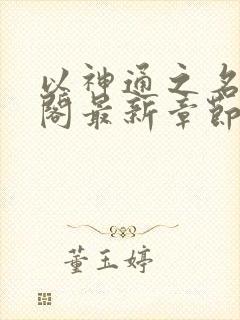 以神通之名
阁最新章节
董玉婷